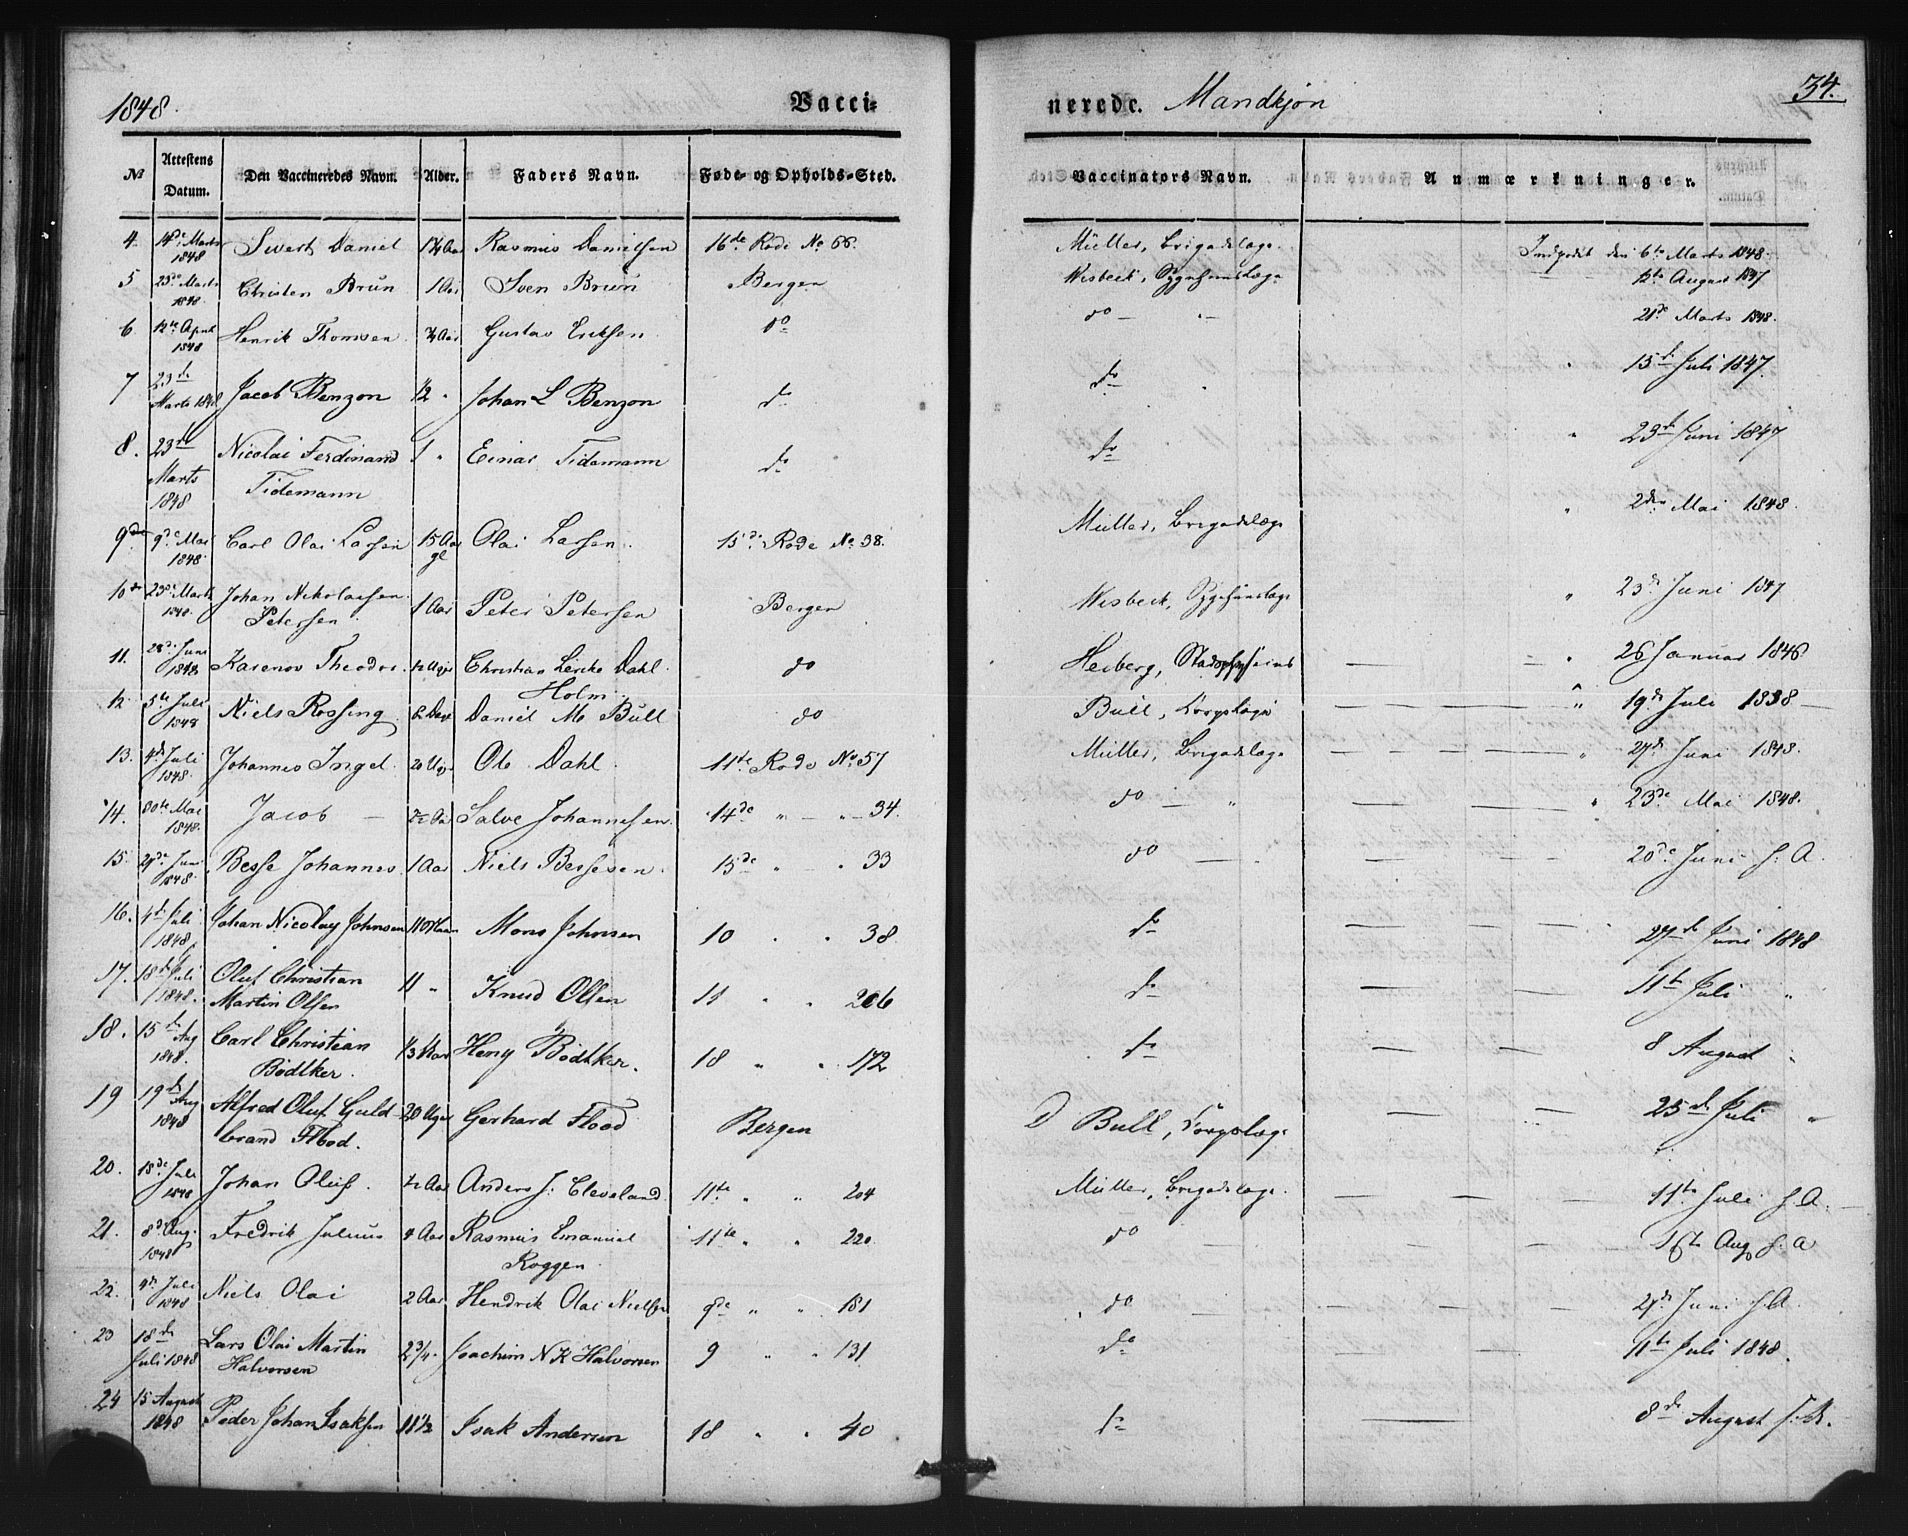 1848.
Vacci-
nerede. Mandkjøn
34.
No Attestens Datum. Den Vaccineredes Navn. Alder. Faders Navn. Føde- og Opholds-Sted. Vaccinators Navn. Anmærkninger.
4. 14de Marts 1848 Sivert Daniel Rasmus Danielsen 16de Rode No 66. Müller, Brigadelæge. Indpodet den 6te Marts 1848.
5 23de Marts 1848. Christen Brun 1 Aar Sven Brun Bergen Wisbeck, Sygehuuslæge 12te August 1847
6 12te April 1848 Henrik Thomsen Gustav Eriksen do do 21de Marts 1848.
7 23de Marts 1848 Jacob Benzon 1/2 " Johan L Benzon do do " 15de Juli 1847.
8. 23de Marts 1848 Nicolai Ferdinand Tidemann 1 " Einar Tidemann do do " 23de Juni 1847
9de 9de Mai 1848. Carl Olai Larsen 15 Aar gl Olai Larsen. 15de Rode No. 38. Müller, Brigadelæge " 2den Mai 1848.
10de 23de Marts 1848. Johan Nikolaisen Petersen. 1 Aar Peter Petersen Bergen Wisbeck, Sygehuuslæge " 23de Juni 1847
11. 28de Juni 1848 Karenov Theodor. 12 Uger Christian Lerche Dahl Holm. do Heiberg, Stadsphysicus " 26 Januar 1846
12 5te Juli 1848 Niels Rossing Daniel M. Bull do Bull, Corpslæge " 19de Juli 1838
13. 4de Juli 1848. Johannes Ingel. 20 Uger Ole Dahl. 11te Rode No. 57 Müller, Brigadelæge " 27de Juni 1848.
14. 30te Mai 1848. Jacob 1/2 Aar Salve Johannesen 14de " " 34. do " " 23de Mai 1848.
15. 27de Juni 1848. Besse Johannes 1 Aar Niels Bessesen. 15de " " 33 do 20de Juni s. A.
16. 4de Juli 1848. Johan Nicolay Johnsen Mons Johnsen 10 " " 38 do 27de Juni 1848
17. 18de Juli 1848. Oluf Christian Martin Olsen 11 " Knud Olsen 11 " " 206 do 11te Juli "
18. 15de Aug 1848. Carl Christian Bødtker. Heny Bødtker. 18 " " 172 do 8 August "
19 19de Aug 1848 Alfred Oluf Guldbrand Flood. 20 Uger Gerhard Flood Bergen D Bull, Corpslæge 25de Juli "
20. 18de Juli 1848 Johan Oluf. 1/2 Aar Anders J. Cleveland 11te " " 204 Müller, Brigadelæge. 11te Juli s. A.
21. 8de Aug. 1848 Fredrik Julius 4 Aar Rasmus Emanuel Roggen 11te " " 220. do 1ste Aug s. A
22. 4de Juli 1848 Niels Olai 2 Aar Hendrik Olai Nielsen 9de " " 181 do 27de Juni s A.
23 18de Juli 1848 Lars Olai Martin Halvorsen 2 3/4. Joachim N K Halvorsen 9 " " 131 do 11te Juli 1848.
24 15 August 1848 Peder Johan Isaksen 11 1/2 Isak Andersen 18 " " 40 do 8de August s. A.